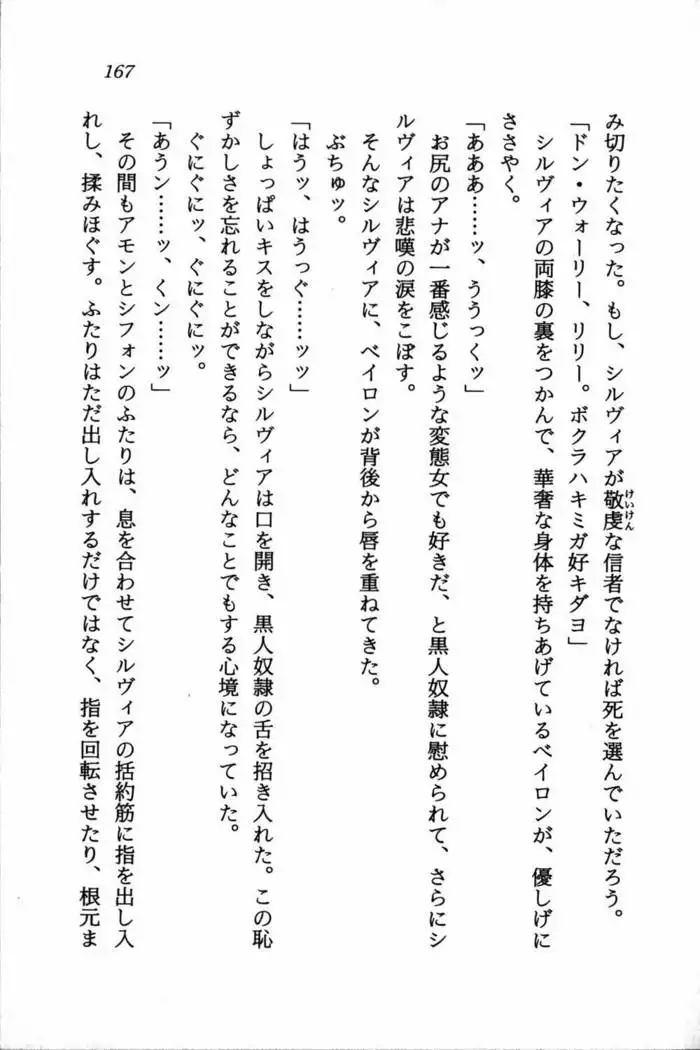 167
み切りたくなった。もし、シルヴィアが敬虔な信者でなければ死を選んでいただろう。
けいけん
「ドン・ウォーリー、リリー。ボクラハキミガ好キダヨ」
シルヴィアの両膝の裏をつかんで、華奢な身体を持ちあげているベイロンが、優しげに
ささやく。
「あああ……ッ、ううっくッ」
お尻のアナが一番感じるような変態女でも好きだ、と黒人奴隷に慰められて、さらにシ
ルヴィアは悲嘆の涙をこぼす。
そんなシルヴィアに、ベイロンが背後から唇を重ねてきた。
ぶちゅッ。
「はうッ、はうっぐ……ッッ」
しょっぱいキスをしながらシルヴィアは口を開き、黒人奴隷の舌を招き入れた。この恥
ずかしさを忘れることができるなら、どんなことでもする心境になっていた。
ぐにぐにッ、ぐにぐにッ。
「あうン……ッ、くン……ッ」
その間もアモンとシフォンのふたりは、息を合わせてシルヴィアの括約筋に指を出し入
れし、揉みほぐす。ふたりはただ出し入れするだけではなく、指を回転させたり、根元ま